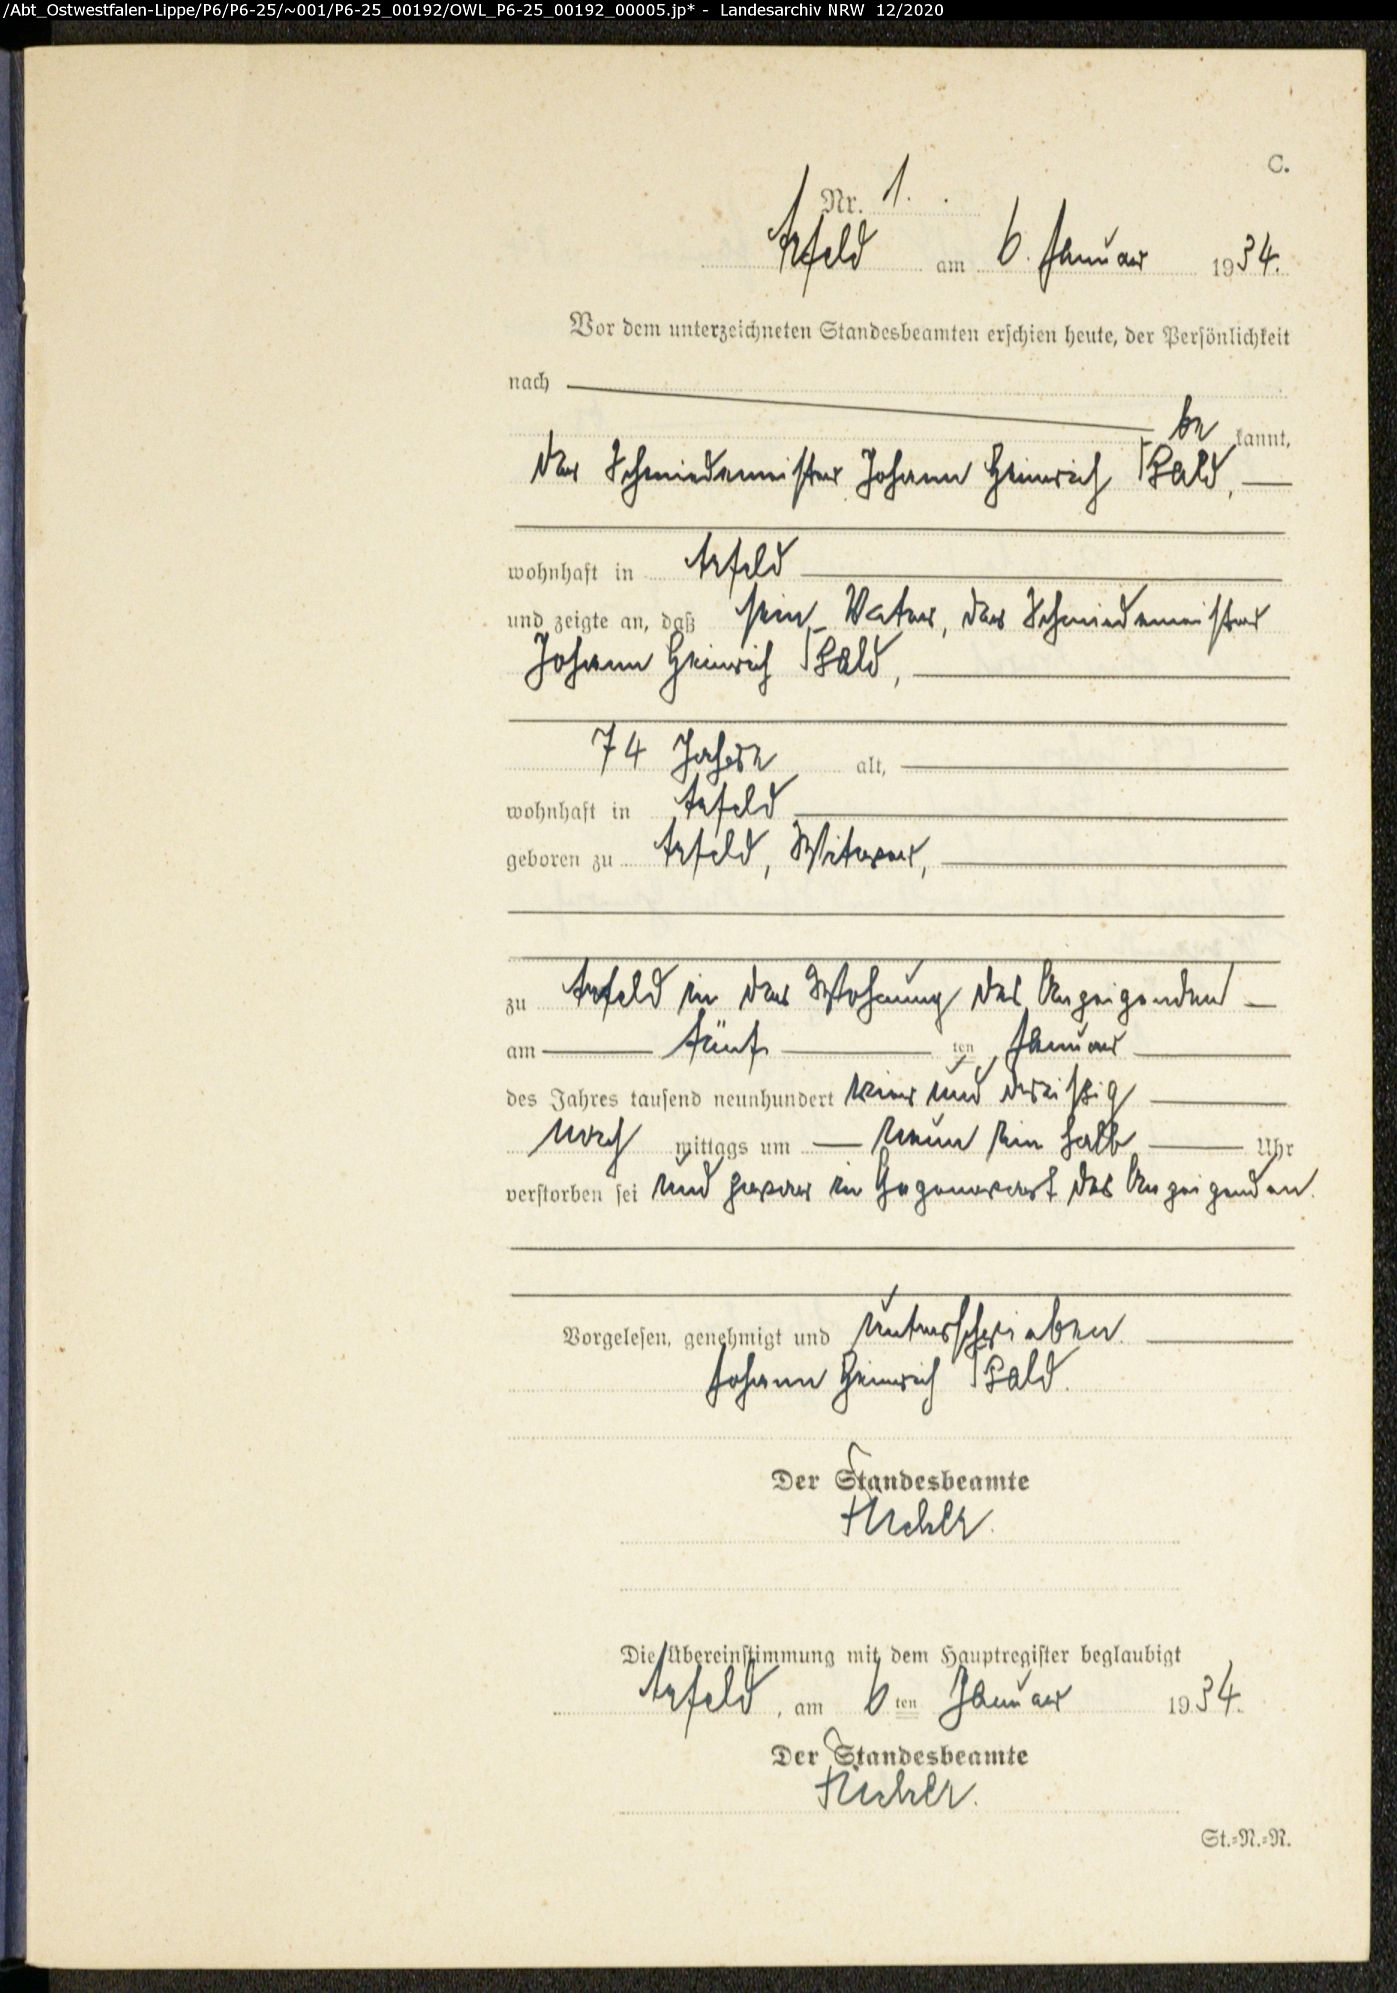 /Abt_Ostwestfalen-Lippe/P6/P6-25/~001/P6-25_00192/OWL_P6-25_00192_00005.jp* - Landesarchiv NRW 12/2020
C.
Nr. 1.
Arfeld am 6. Januar 1934.
Vor dem unterzeichneten Standesbeamten erschien heute, der Persönlichkeit
nach
be kannt,
der Schmiedemeister Johann Heinrich Bald,
wohnhaft in Arfeld
und zeigte an, daß sein Vater, der Schmiedemeister
Johann Heinrich Bald,
74 Jahre alt,
wohnhaft in Arfeld
geboren zu Arfeld, Witwer,
zu Arfeld in der Wohnung des Anzeigenden
am fünf ten Januar
des Jahres tausend neunhundert vier und dreißig
nach mittags um neun ein halb Uhr
verstorben sei und zwar in Gegenwart des Anzeigenden.
Vorgelesen, genehmigt und unterschrieben.
Johann Heinrich Bald.
Der Standesbeamte
Die Übereinstimmung mit dem Hauptregister beglaubigt
Arfeld, am 6 ten Januar 1934.
Der Standesbeamte
St.=N.=R.